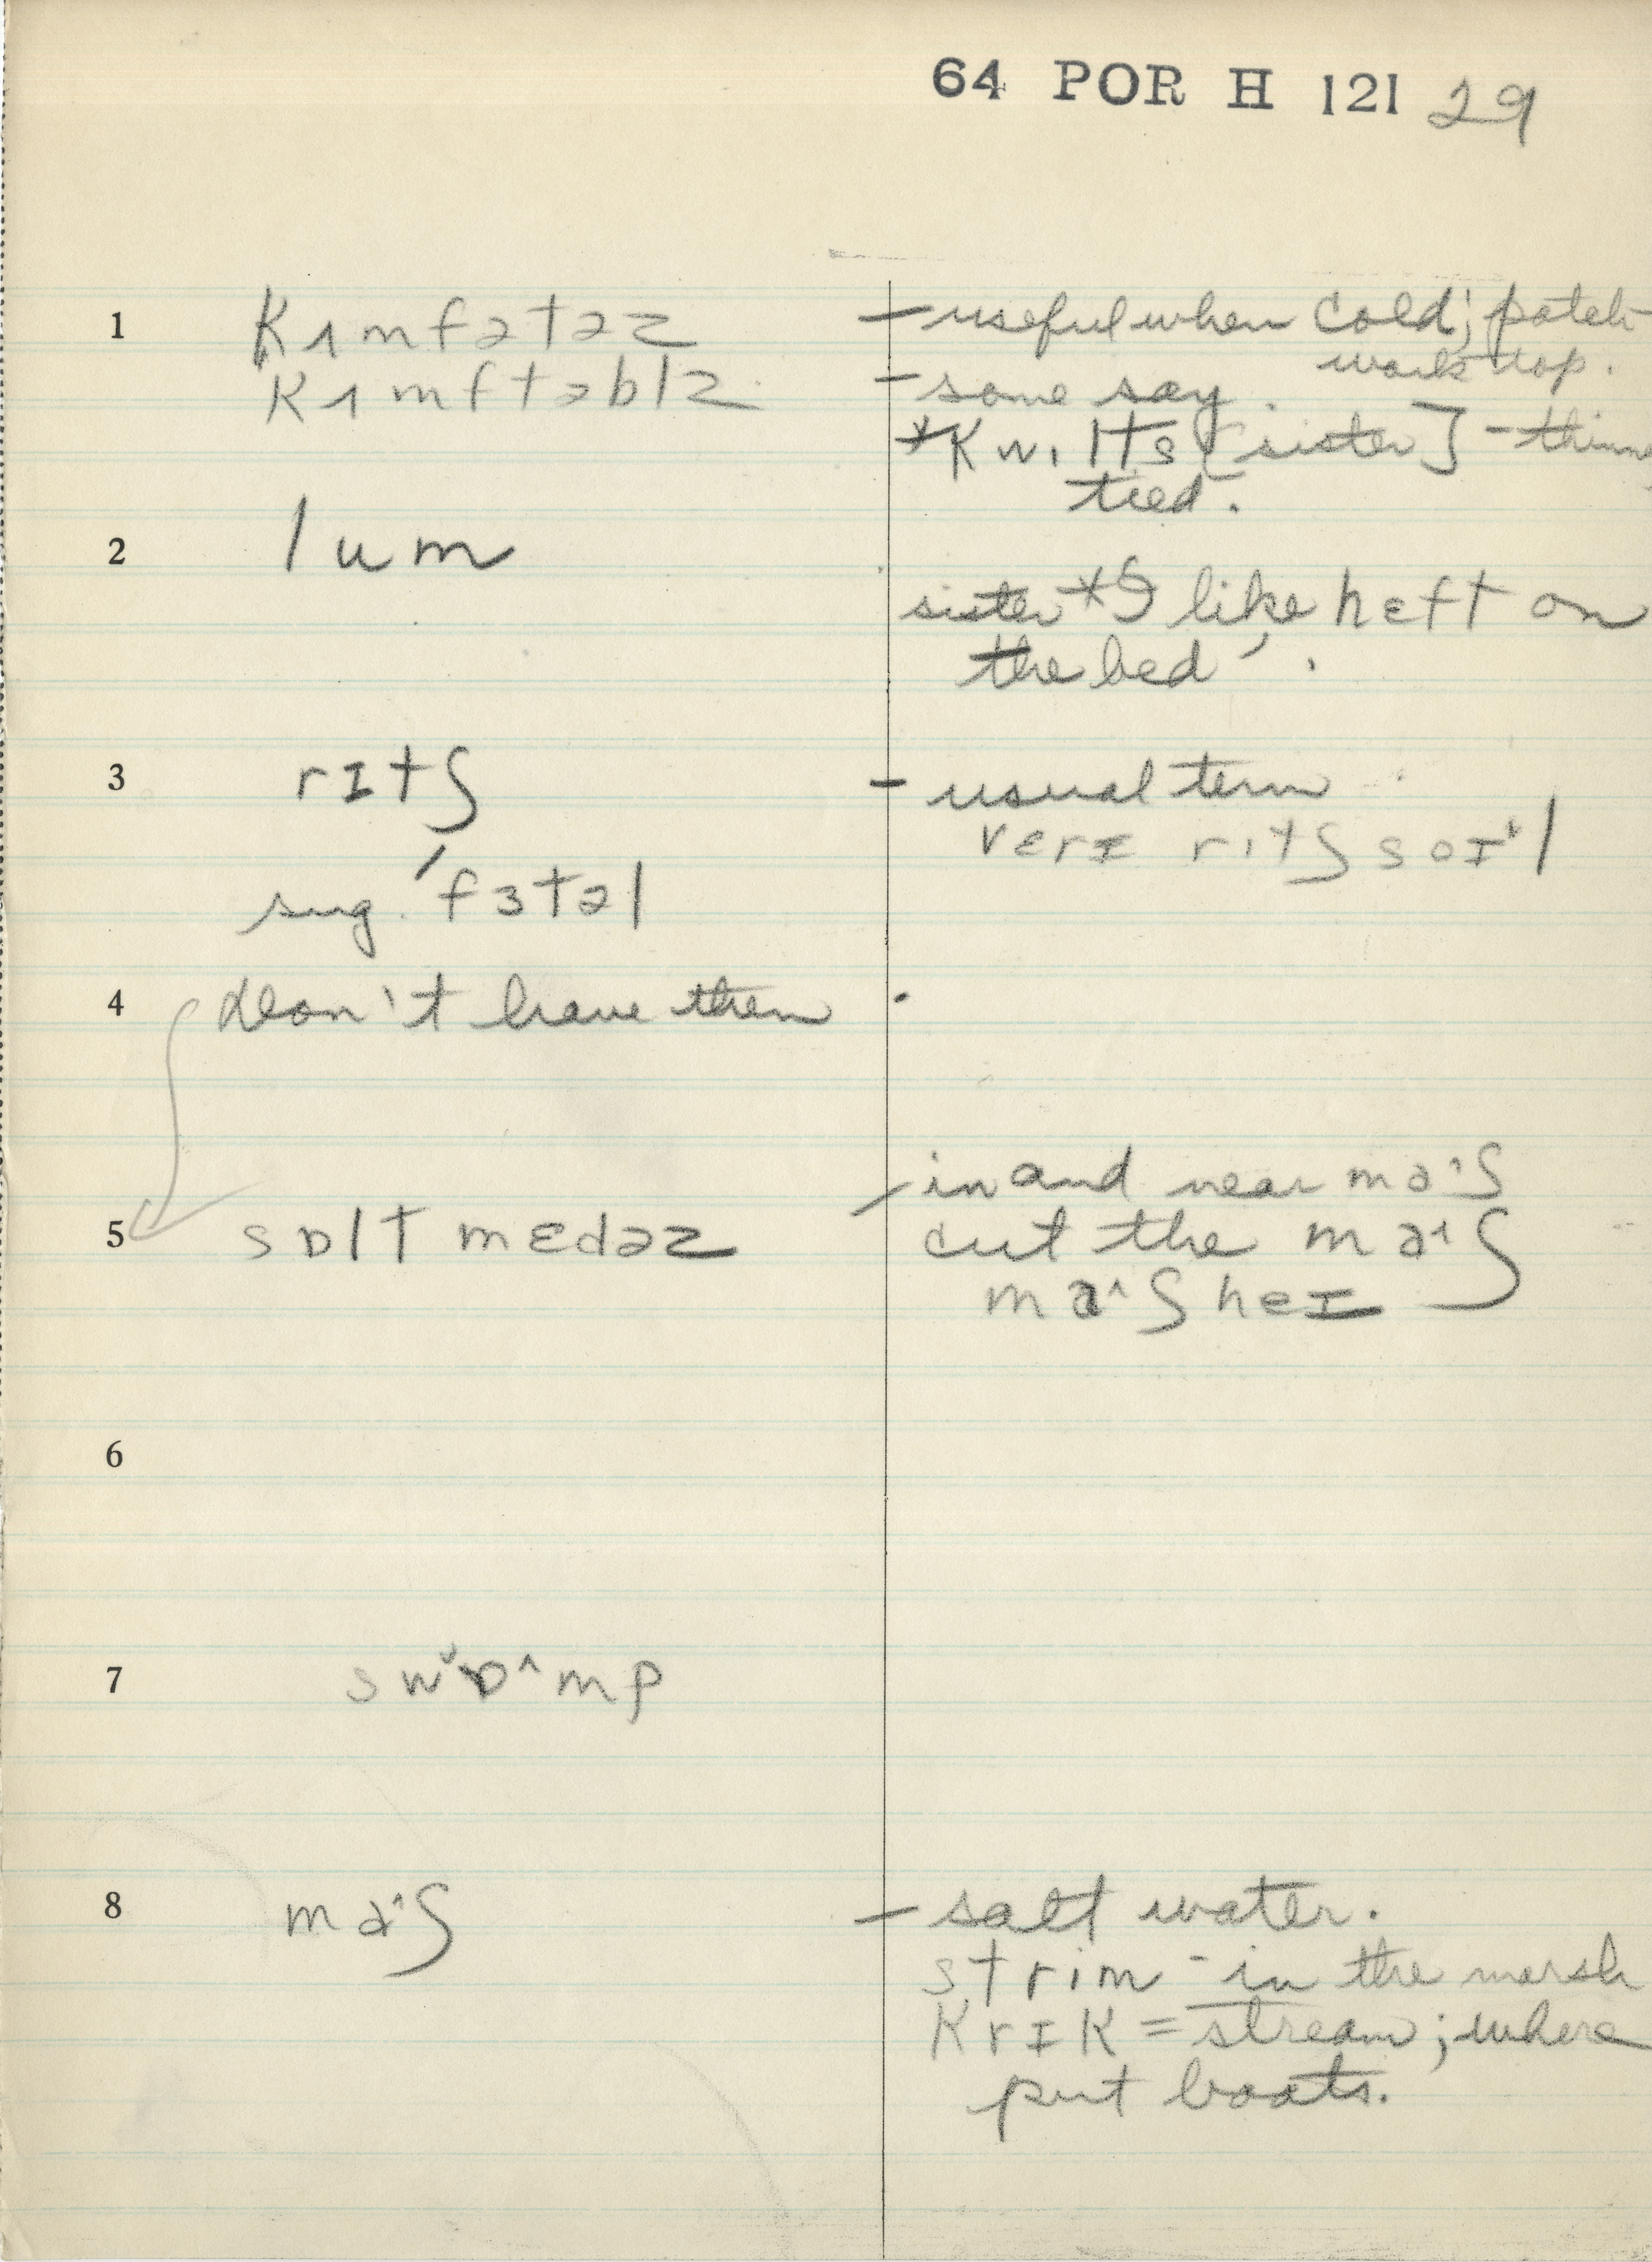 64 POR H 121 29
1 kʌmfətəz — useful when cold; patch
work top.
kʌmftəblz. — some say.
*kwɪlts [sister] — thinne
tied.
2 lum
sister *"I like hɛft on
the bed".
3 rɪtʃ — usual term
vɛrɪ rɪtʃ sɔɪˇl
sug. ˈfɜtəl
4 don't have them.
5 sɒlt mɛdəz / in and near ma^ʃ
cut the ma^ʃ
ma^ʃ heɪ
6
7 swˇɒ^mp
8 ma^ʃ — salt water.
strim - in the marsh
krɪk = stream; where
put boats.